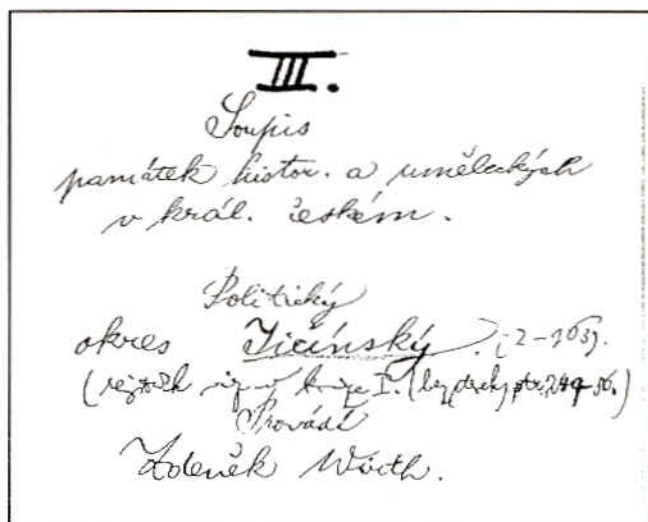 III.
Soupis
památek histor. a uměleckých
v král. českém.
Politický
okres Jičínský.
(rejstřík viz v knize I.
Provádí
Zdeněk Wirth.